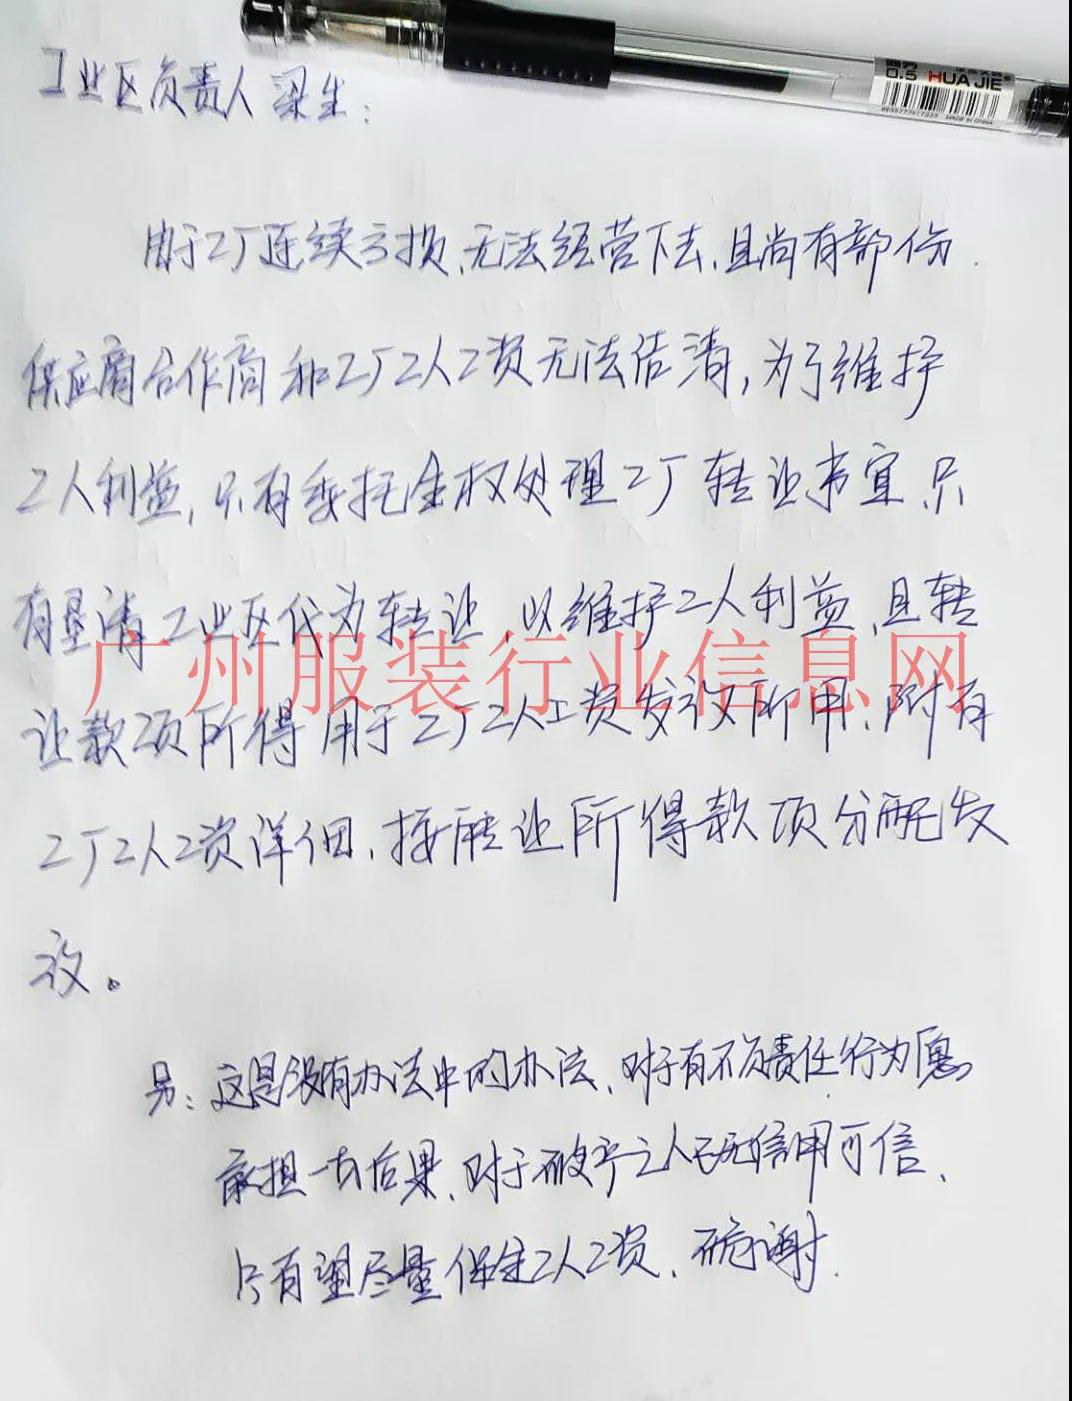 0.5 HUA JIE
MADE IN CHINA
工业区负责人梁生:
由于工厂连续亏损,无法经营下去,且尚有部份
供应商合作商和工厂工人工资无法结清,为了维护
工人利益,只有委托全权处理工厂转让事宜,只
有恳请工业区代为转让,以维护工人利益,且转
广州服装行业信息网
让款项所得用于工厂工人工资发放所用.附有
工厂工人工资详细,按转让所得款项分配发
放。
另:这是没有办法中的办法,对于有不负责任行为愿
承担一切后果,对于破产之人已无信用可信,
只有望尽量保全工人工资,
谢.